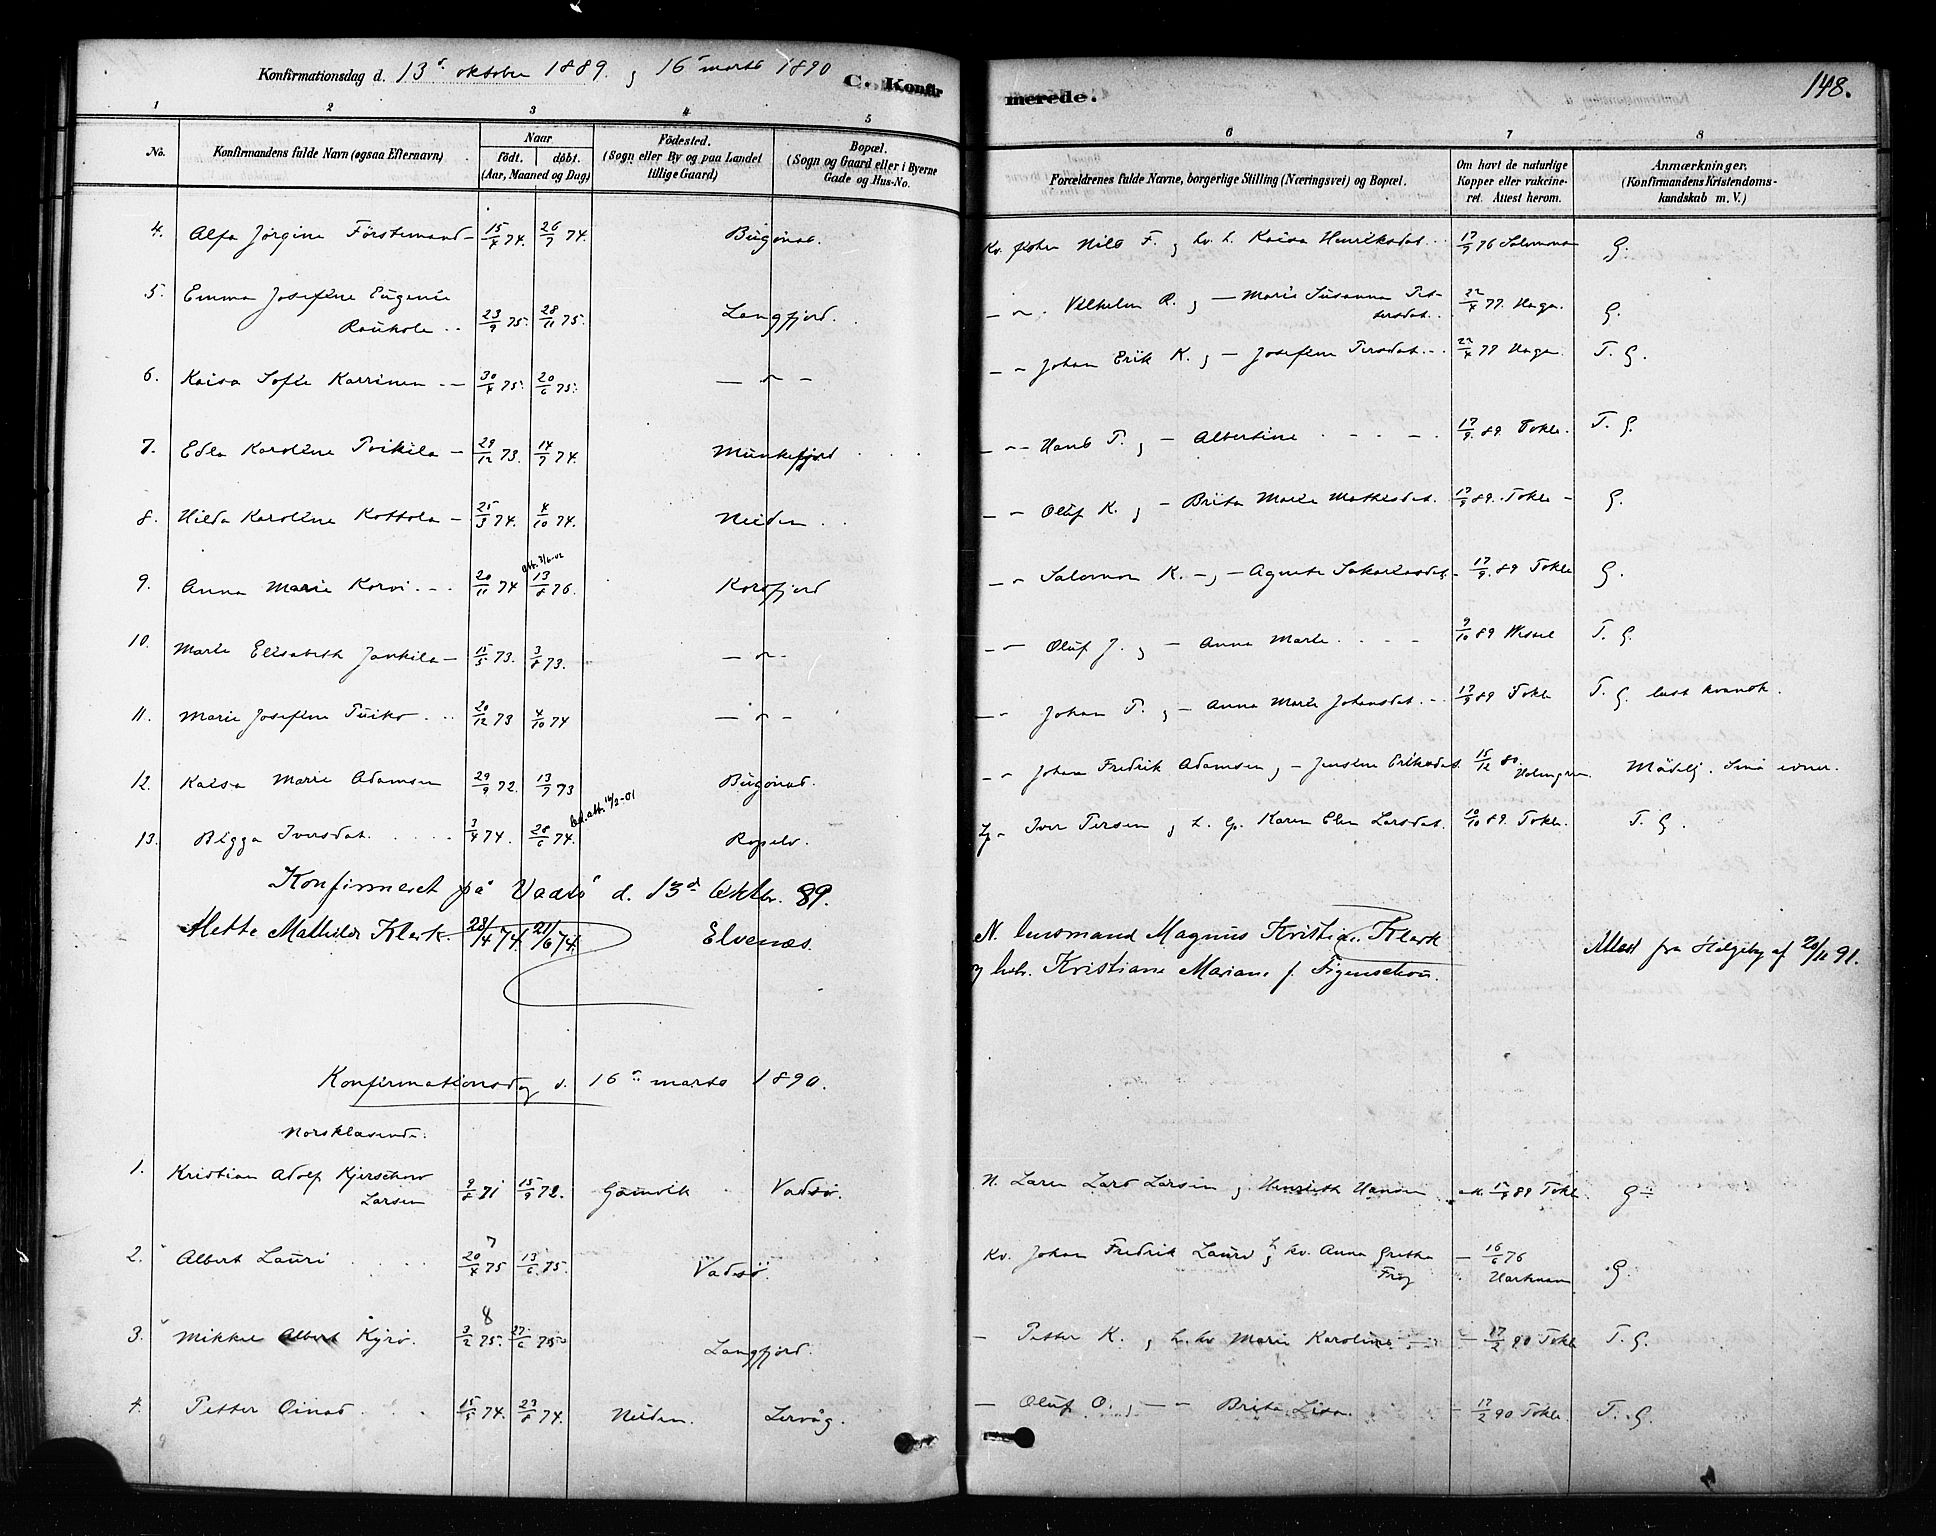 Konfirmationsdag d. 13de oktober 1889. og 16de marts 1890
C. Konfirmerede.
148.
1 2 3 4 5 6 7 8
No.
Konfirmandens fulde Navn (ogsaa Efternavn)
Naar
födt. döbt.
(Aar, Maaned og Dag)
Födested.
(Sogn eller By og paa Landet
tillige Gaard)
Bopæl.
(Sogn og Gaard eller i Byerne
Gade og Hus-No.
Forældrenes fulde Navne, borgerlige Stilling (Næringsvei) og Bopæl.
Om havt de naturlige
Kopper eller vakcine-
ret. Attest herom.
Anmærkninger,
(Konfirmandens Kristendoms-
kundskab m. V.)
4. Alfa Jörgine Förstemand 15/4 74. 26/7 74. Bugönæs. Nils F. og Kaisa Henriksdat. 17/9 76 Salomonsen G.
5. Emma Josefine Eugenie
Raukola 23/9 75. 28/11 75. Langfjord. Vilhelm R. og — Marie Susanna Pet-
tersdat. 22/4 77. Haga. G.
6. Kaisa Sofie Karrinen 30/4 75. 20/6 75. — " — Johan Erik K. og — Josefine Persdat. 22/4 77 Haga. T. G.
7. Edla Karoline Poikila 29/12 73. 14/7 74. Munkefjord Hans P. og — Albertine 17/9. 89. Tokle. T. G.
8. Hilda Karoline Kottola 25/3 74. 4/10 74. Neiden Oluf K. og — Brita Marie Mathisdat. 17/9 89. Tokle G.
att. 3/6-02
9. Anna Marie Korvi 20/11 74 13/8 76. Korsfjord Salomon K. og — Agneta Sakariasdat. 17/9. 89 Tokle G.
10. Marie Elisabeth Jankila 15/5 73. 3/8 73. — " — Oluf J. og — Anna Marie 9/10 89 Wessel T. G.
11. Marie Josefine Tuiko 20/12 73 4/10 74 — " — Johan T. og — Anna Marie Johansdat. 17/9 89 Tokle T. G.
12. Kaisa Marie Adamsen 29/9 72. 13/7 73 Bugönæs. Johan Fredrik Adamsen og — Jensine Eriksdat. 15/12 80. Holmgren Mådelig. Små evner.
13. Bigga Iversdat. 3/4 74. 28/6 74. att. 14/2-01 Ropelv. Iver Persen og L. Gp. Karen Elen Larsdat. 10/10 89. Tokle. T. G.
Konfirmeret på Vadsö d. 13de Oktbr. 89.
Mette Mathilde Klerk. 28/4 74. 21/6 74. Elvenæs. N. husmand Magnus Kristian Klerk Attest fra Helgeby af 20/11 91.
og hstr. Kristiane Mariane f. Figenschou.
Konfirmationsdag d. 16de marts 1890.
Norsklæsende:
1. Kristian Adolf Kjerschow
Larsen 9/8 71 15/9 72. Gamvik Vadsö. N. Lars Larsen og Henriette Hansen 17/9 89 Tokle G÷
2. Albert Lauri 20/4 75 13/6 75. Vadsö. Kv. Johan Fredrik Lauri og L. kv. Anna Gretha
Frog — 16/6 76
Harkman G.
3. Mikkel Albert Kyrö. 3/2 75. 27/6 75 Langfjord. — Petter K. og L. kv Marie Karoline — 17/2 90 Tokle T. G.
4. Petter Oinas 15/5 74. 23/8 74. Neiden. Lervåg. — Oluf O. og — Brita Lisa. — 17/2 90 Tokle. T. G.